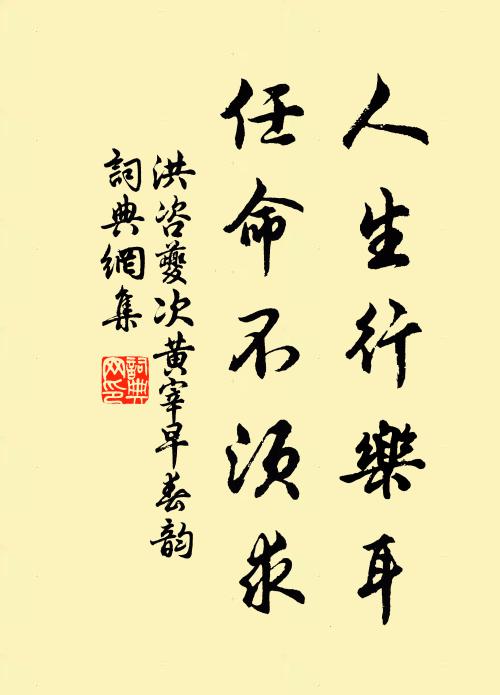 人生行樂耳
任命不須求
洪咨夔次黃宰早春韵
詞典網集
詞典網印